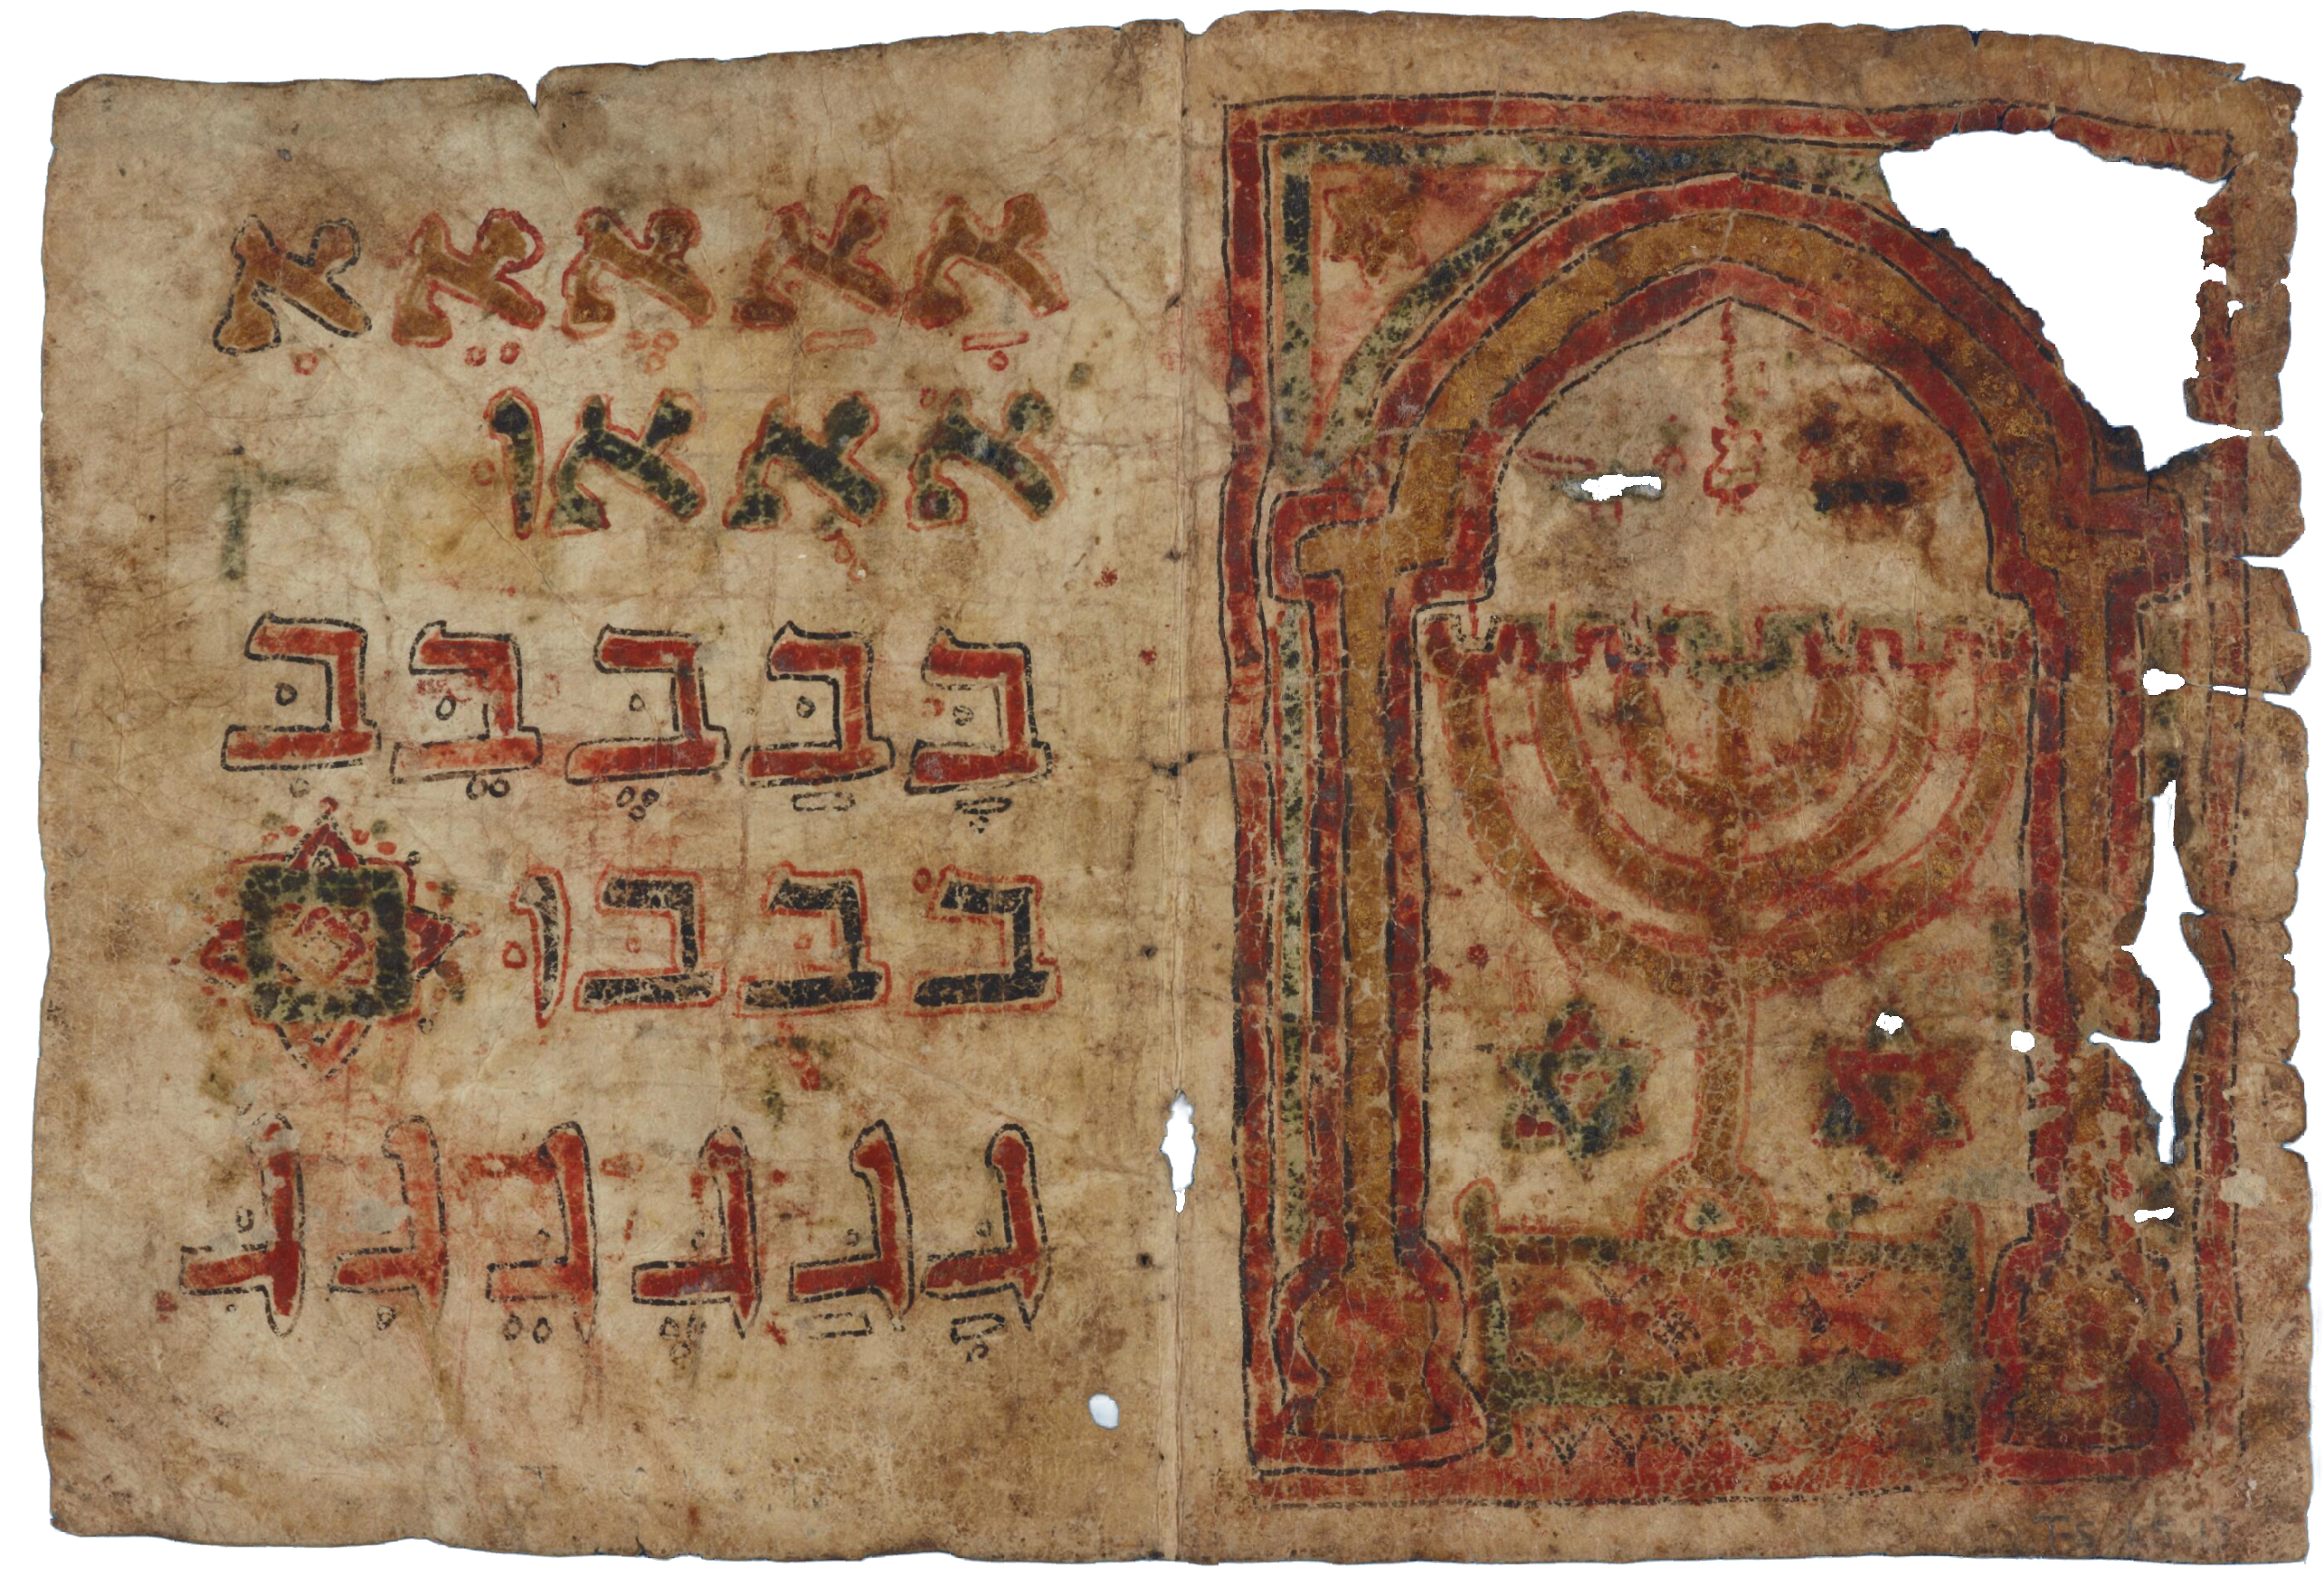 אָ אַ אֶ אֵ אִ
אֹ אֻ אוּ
בָּ בַּ בֶּ בֵּ בִּ
בֹּ בֻּ בּוּ
גָּ גַּ גֶּ גֵּ גִּ גִּ
T-S K5.13